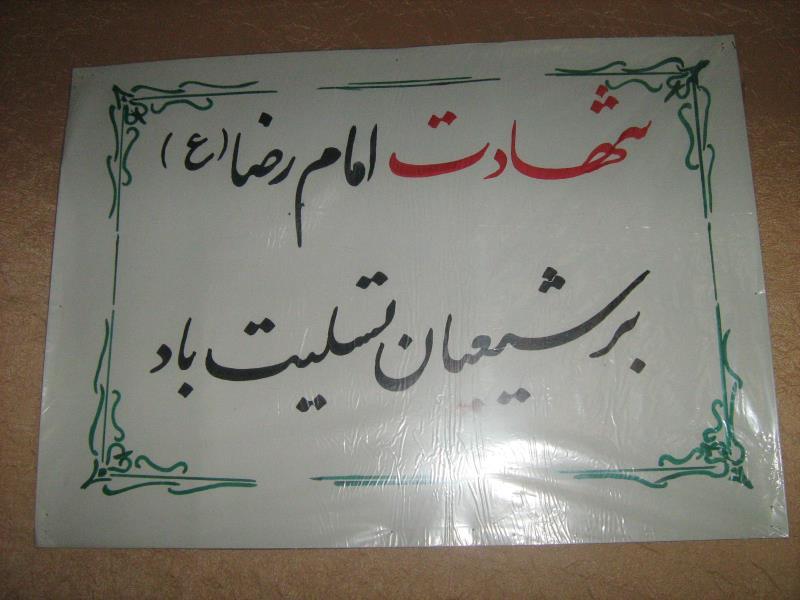 شهادت امام رضا (ع)
بر شیعیان تسلیت باد